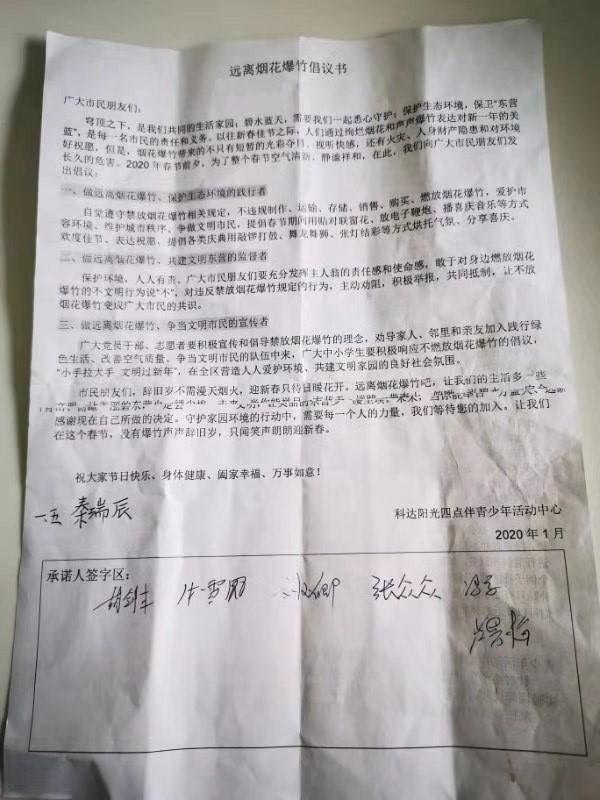 远离烟花爆竹倡议书
广大市民朋友们：
穹顶之下，是我们共同的生活家园；碧水蓝天，需要我们一起悉心守护；保护生态环境，保卫"东营
蓝"，是每一名市民的责任和义务。以往新春佳节之际，人们通过绚烂烟花和声声爆竹表达对新一年的美
好祝愿，但是，烟花爆竹带来的不只有短暂的光彩夺目、视听快感，还有火灾、人身财产隐患和对环境
长久的危害。2020年春节前夕，为了整个春节空气清新、静谧祥和，在此，我们向广大市民朋友们发
出倡议：
一、做远离烟花爆竹、保护生态环境的践行者
自觉遵守禁放烟花爆竹相关规定，不违规制作、运输、存储、销售、购买、燃放烟花爆竹，爱护市
容环境、维护城市秩序、争做文明市民，提倡春节期间用贴对联窗花、放电子鞭炮、播喜庆音乐等方式
欢度佳节、表达祝愿，提倡各类庆典用敲锣打鼓、舞龙舞狮、张灯结彩等方式烘托气氛、分享喜庆。
二、做远离烟花爆竹、共建文明东营的监督者
保护环境，人人有责。广大市民朋友们要充分发挥主人翁的责任感和使命感，敢于对身边燃放烟花
爆竹的不文明行为说"不"，对违反禁放烟花爆竹规定的行为，主动劝阻，积极举报，共同抵制，让不放
烟花爆竹变成广大市民的共识。
三、做远离烟花爆竹、争当文明市民的宣传者
广大党员干部、志愿者要积极宣传和倡导禁放烟花爆竹的理念，劝导家人、邻里和亲友加入践行绿
色生活、改善空气质量、争当文明市民的队伍中来，广大中小学生要积极响应不燃放烟花爆竹的倡议，
"小手拉大手 文明过新年"，在全区营造人人爱护环境、共建文明家园的良好社会氛围。
市民朋友们，辞旧岁不需漫天烟火，迎新春只待日暖花开。远离烟花爆竹吧，让我们的生活多一些
感谢现在自己所做的决定。守护家园环境的行动中，需要每一个人的力量，我们等待您的加入。让我们
在这个春节，没有爆竹声声辞旧岁，只闻笑声朗朗迎新春。
祝大家节日快乐、身体健康、阖家幸福、万事如意！
一.五 秦瑞辰
科达阳光四点伴青少年活动中心
2020年1月
承诺人签字区：
张众众